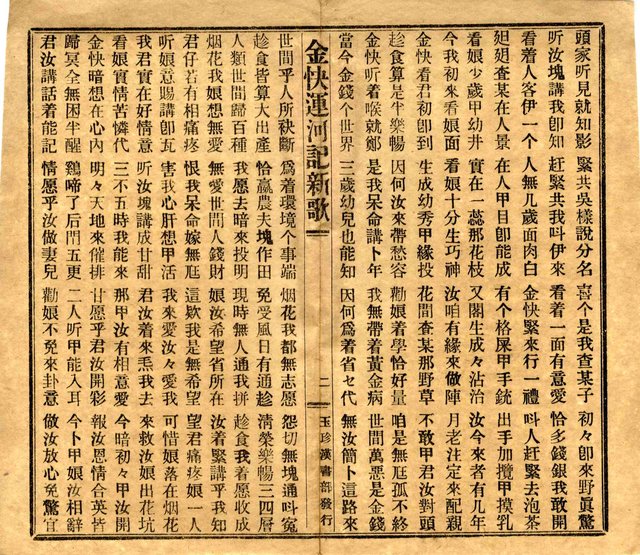 頭家听見就知影 緊共吳樣說分名 喜个是我查某子 初々卽來野眞驚
听汝塊講我卽知 赶緊共我叫伊來 看着一面有意愛 恰多錢銀我敢開
看着人客伊一个 人無几歲面肉白 金快緊來行一禮 呌人赶緊去泡茶
查某在人景 在人甲目卽能成 有个格屎甲手銃 出手加攬甲摸乳
看娘少歲甲幼井 實在一蕊那花枝 又閣生成々沽治 汝今來者有几年
今我初來看娘面 看娘十分生巧神 汝咱有緣來做陣 月老注定來配親
金快看君初卽到 生成幼秀甲緣投 花間查某那野草 不敢甲君汝對頭
趁食算是半樂暢 因何汝來帶愁容 勸娘着學恰好量 咱是無厎孤不終
金快听着喉就鄭 是我呆命講卜年 我無帶着黃金病 世間萬惡是金錢
當今金錢个世界 三歲幼兒也能知 因何爲着省七代 無汝簡卜這路來
金快運河記新歌 二 玉珍漢書部發行
世間乎人所袂斷 爲着環境个事端 烟花我都無志愿 怨切無塊通呌寃
趁食皆算大出產 恰贏農夫塊作田 免受風日有通趁 清榮樂暢三四層
人類世間歸百種 我愿去暗來投明 現時無人通我拼 趁食我着愿收成
烟花我娘想無愛 無愛世間人錢財 娘汝希望省所在 汝着緊講乎我知
君仔若有相痛疼 恨我呆命嫁無尪 這欵我是無希望 望君痛疼娘一人
听娘意賜講卽瓦 害我心肝想甲活 我來愛汝々愛我 可惜娘落在烟花
我君實在好情意 听汝塊講成甘甜 君汝着來𤆬我去 來救汝娘出花坑
看娘實情苦憐代 三不五時我能來 那甲汝有相意愛 今暗初々甲汝開
金快暗想在心內 明々天地來催排 甘愿乎君汝開彩 報汝恩情合英皆
歸冥全無困半醒 鷄啼了后閂五更 二人听甲能入耳 今卜甲娘汝相辭
君汝講話着能記 情愿乎汝做妻兒 勸娘不免來卦意 做汝放心免驚宜